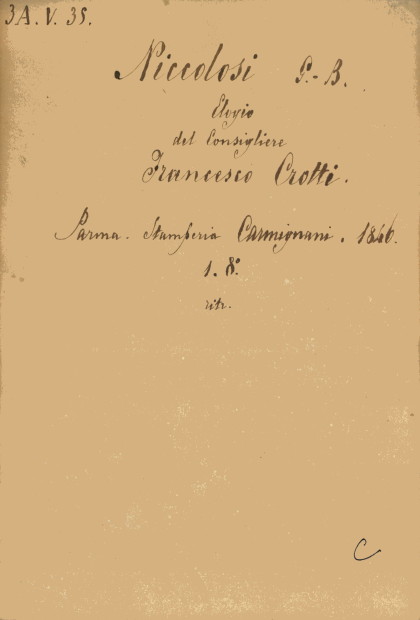 3A. V. 35.
Niccolosi G.-B.
Elogio
del Consigliere
Francesco Crotti.
Parma. Stamperia Carmignani. 1846.
1. 8.°
ritr.
C